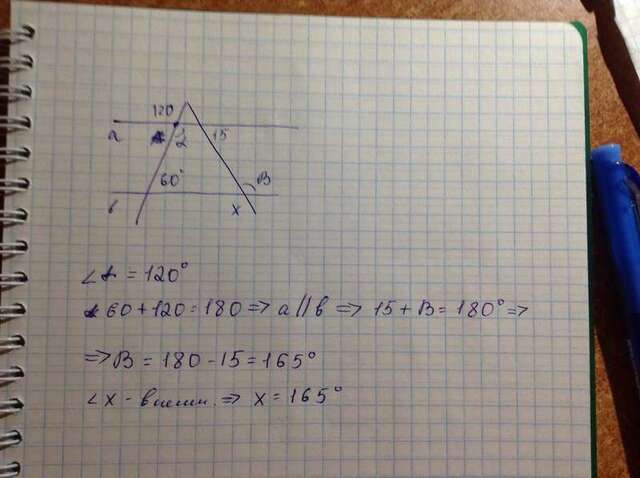 120
a 2 15
60° B
в x
∠2 = 120°
60 + 120 = 180 => a || в => 15 + B = 180° =>
=> B = 180 - 15 = 165°
∠x - внешн. => x = 165°